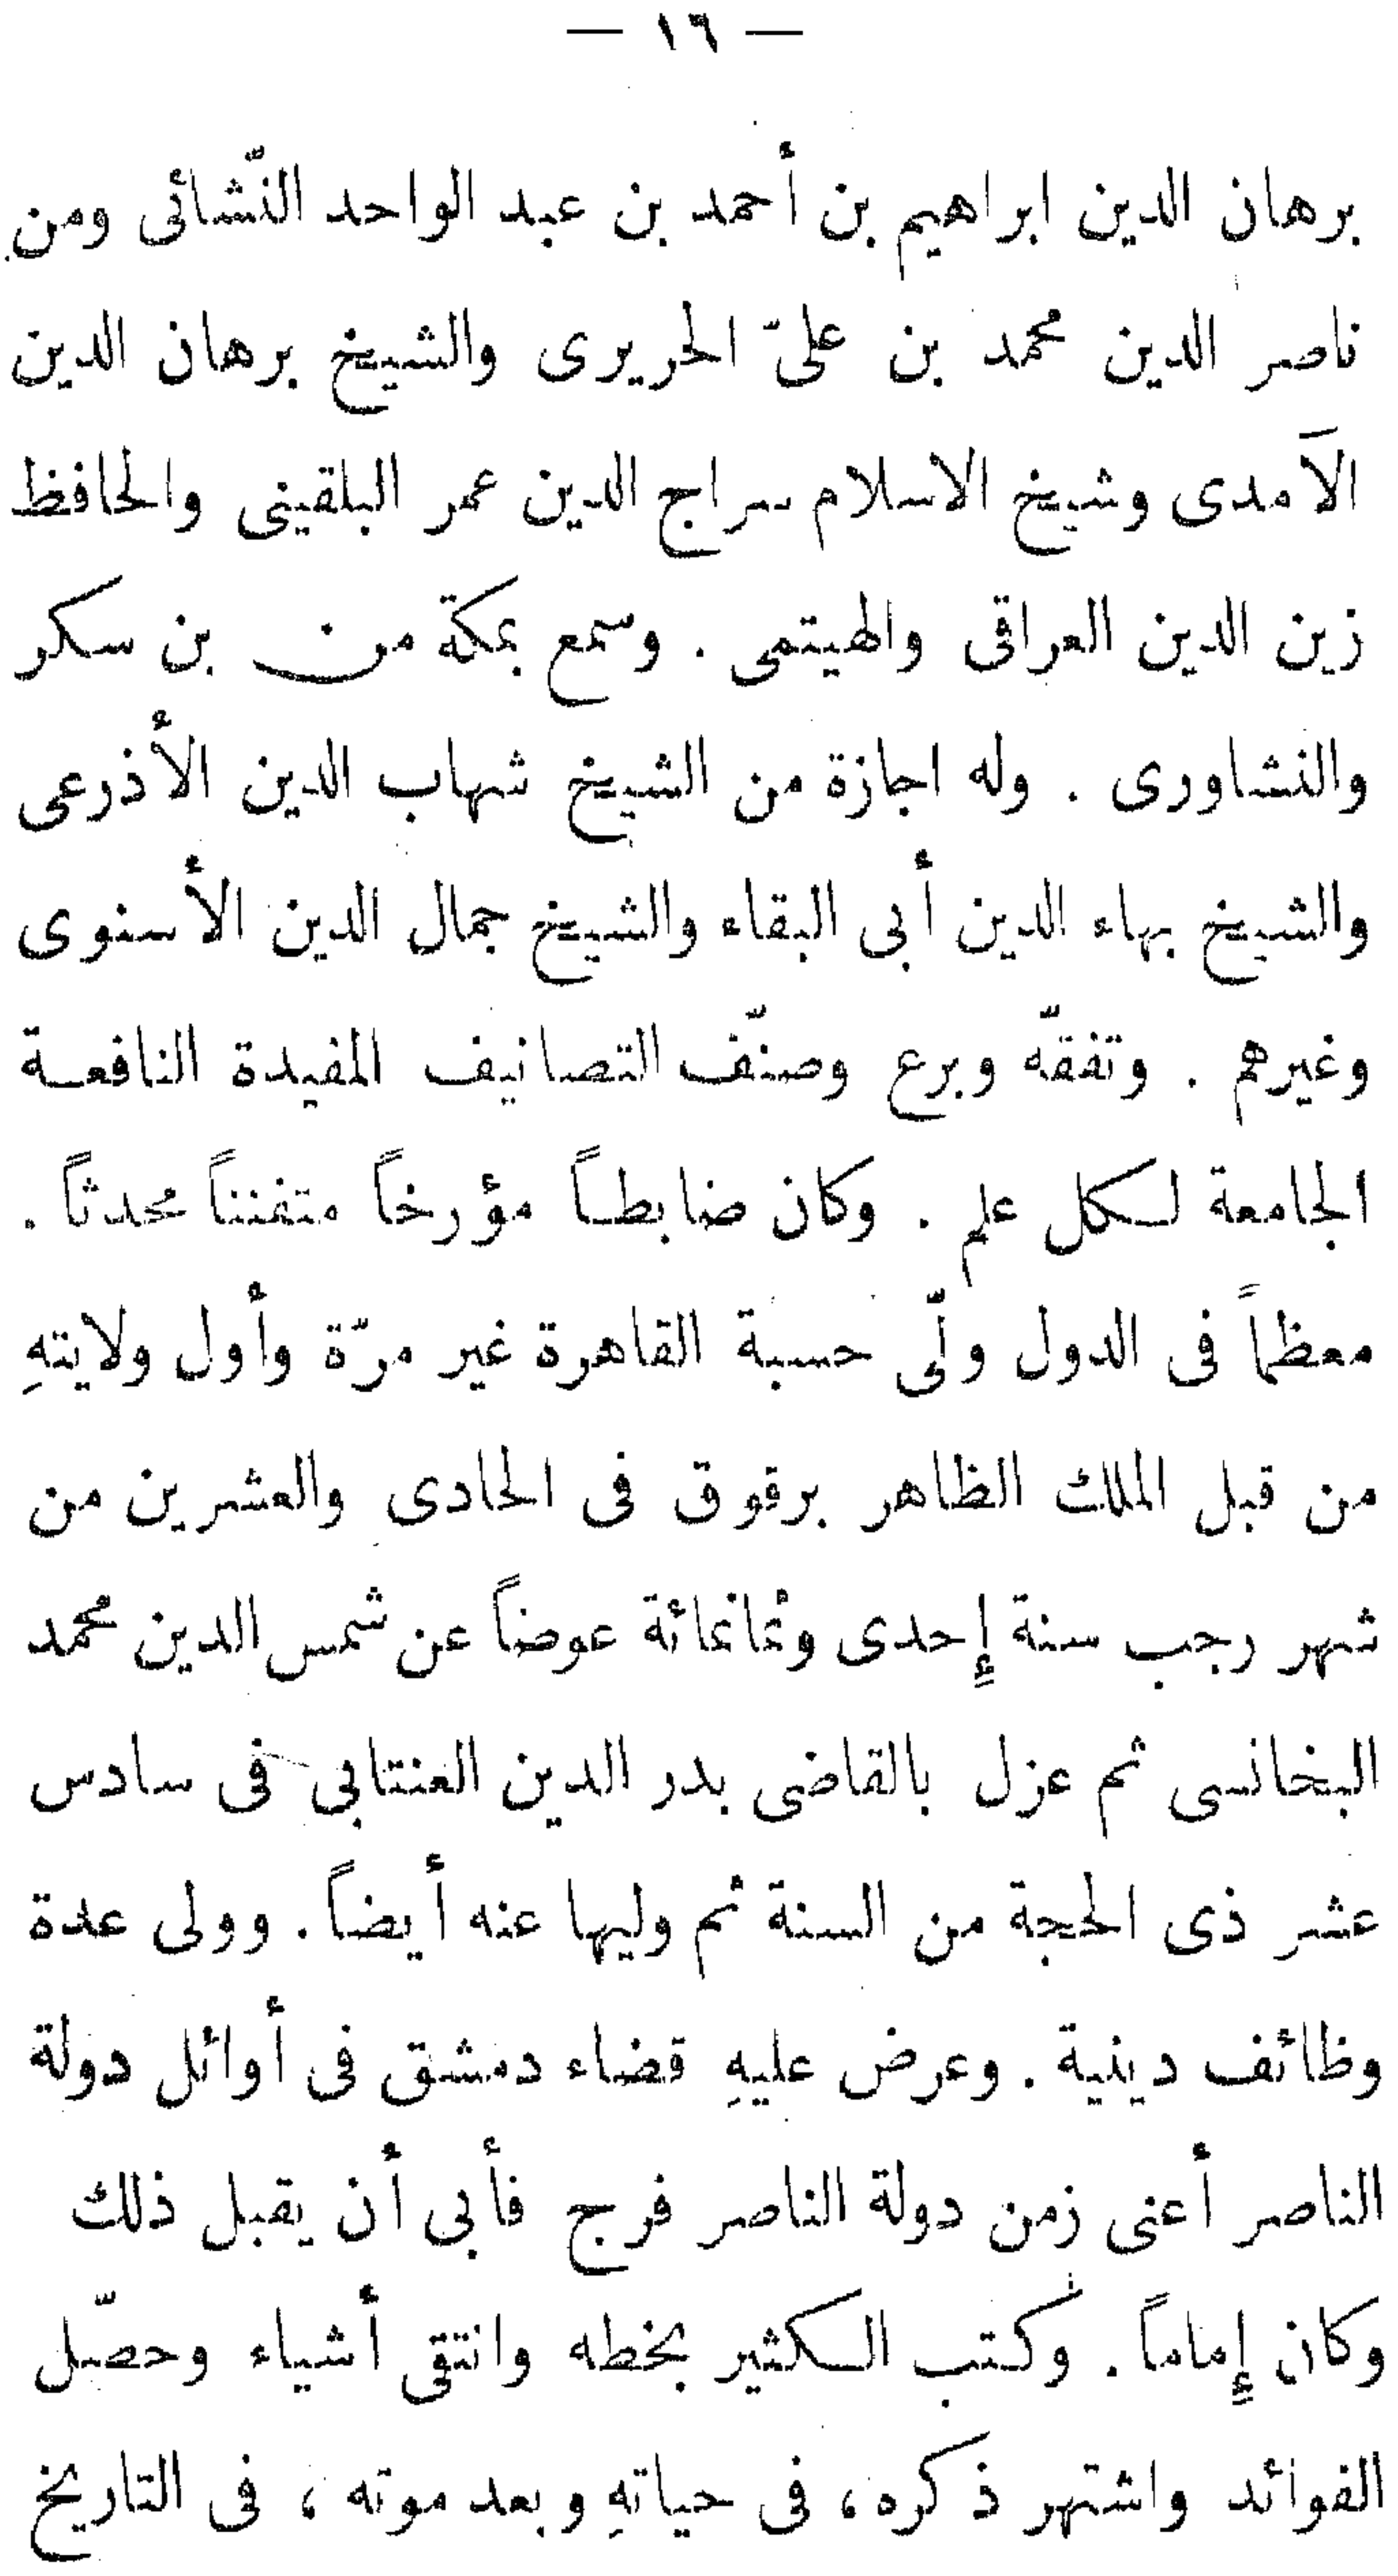 — ١٦ —
برهان الدين ابراهيم بن أحمد بن عبد الواحد النّشائى ومن
ناصر الدين محمد بن علىّ الحريرى والشيخ برهان الدين
الآمدى وشيخ الاسلام سراج الدين عمر البلقينى والحافظ
زين الدين العراقى والهيتمى . وسمع بمكة من بن سكر
والنشاورى . وله اجازة من الشيخ شهاب الدين الأذرعى
والشيخ بهاء الدين أبى البقاء والشيخ جمال الدين الأسنوى
وغيرهم . وتفقّه وبرع وصنّف التصانيف المفيدة النافعة
الجامعة لكل علم . وكان ضابطاً مؤرخاً متفنناً محدثاً .
معظماً فى الدول ولّى حسبة القاهرة غير مرّة وأول ولايتهِ
من قبل الملك الظاهر برقوق فى الحادى والعشرين من
شهر رجب سنة إحدى وثمانمائة عوضاً عن شمس الدين محمد
البخانسى ثم عزل بالقاضى بدر الدين العنتابى فى سادس
عشر ذى الحجة من السنة ثم وليها عنه أيضاً . وولى عدة
وظائف دينية . وعرض عليهِ قضاء دمشق فى أوائل دولة
الناصر أعنى زمن دولة الناصر فرج فأبى أن يقبل ذلك
وكان إماماً . وكتب الكثير بخطه وانتقى أشياء وحصّل
الفوائد واشتهر ذكره ، فى حياتهِ وبعد موته ، فى التاريخ